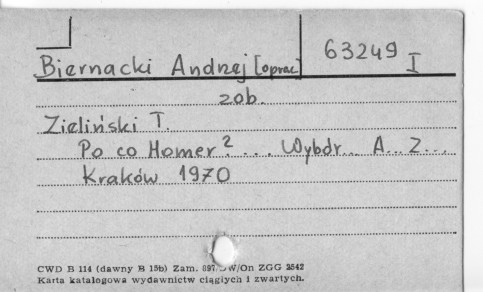 Biernacki Andrzej [oprac] 63249 I
zob.
Zieliński T.
Po co Homer? ... Wybór.. A... Z...
Kraków 1970
CWD B 114 (dawny B 15b) Zam. 897 W/On ZGG 2542
Karta katalogowa wydawnictw ciągłych i zwartych.